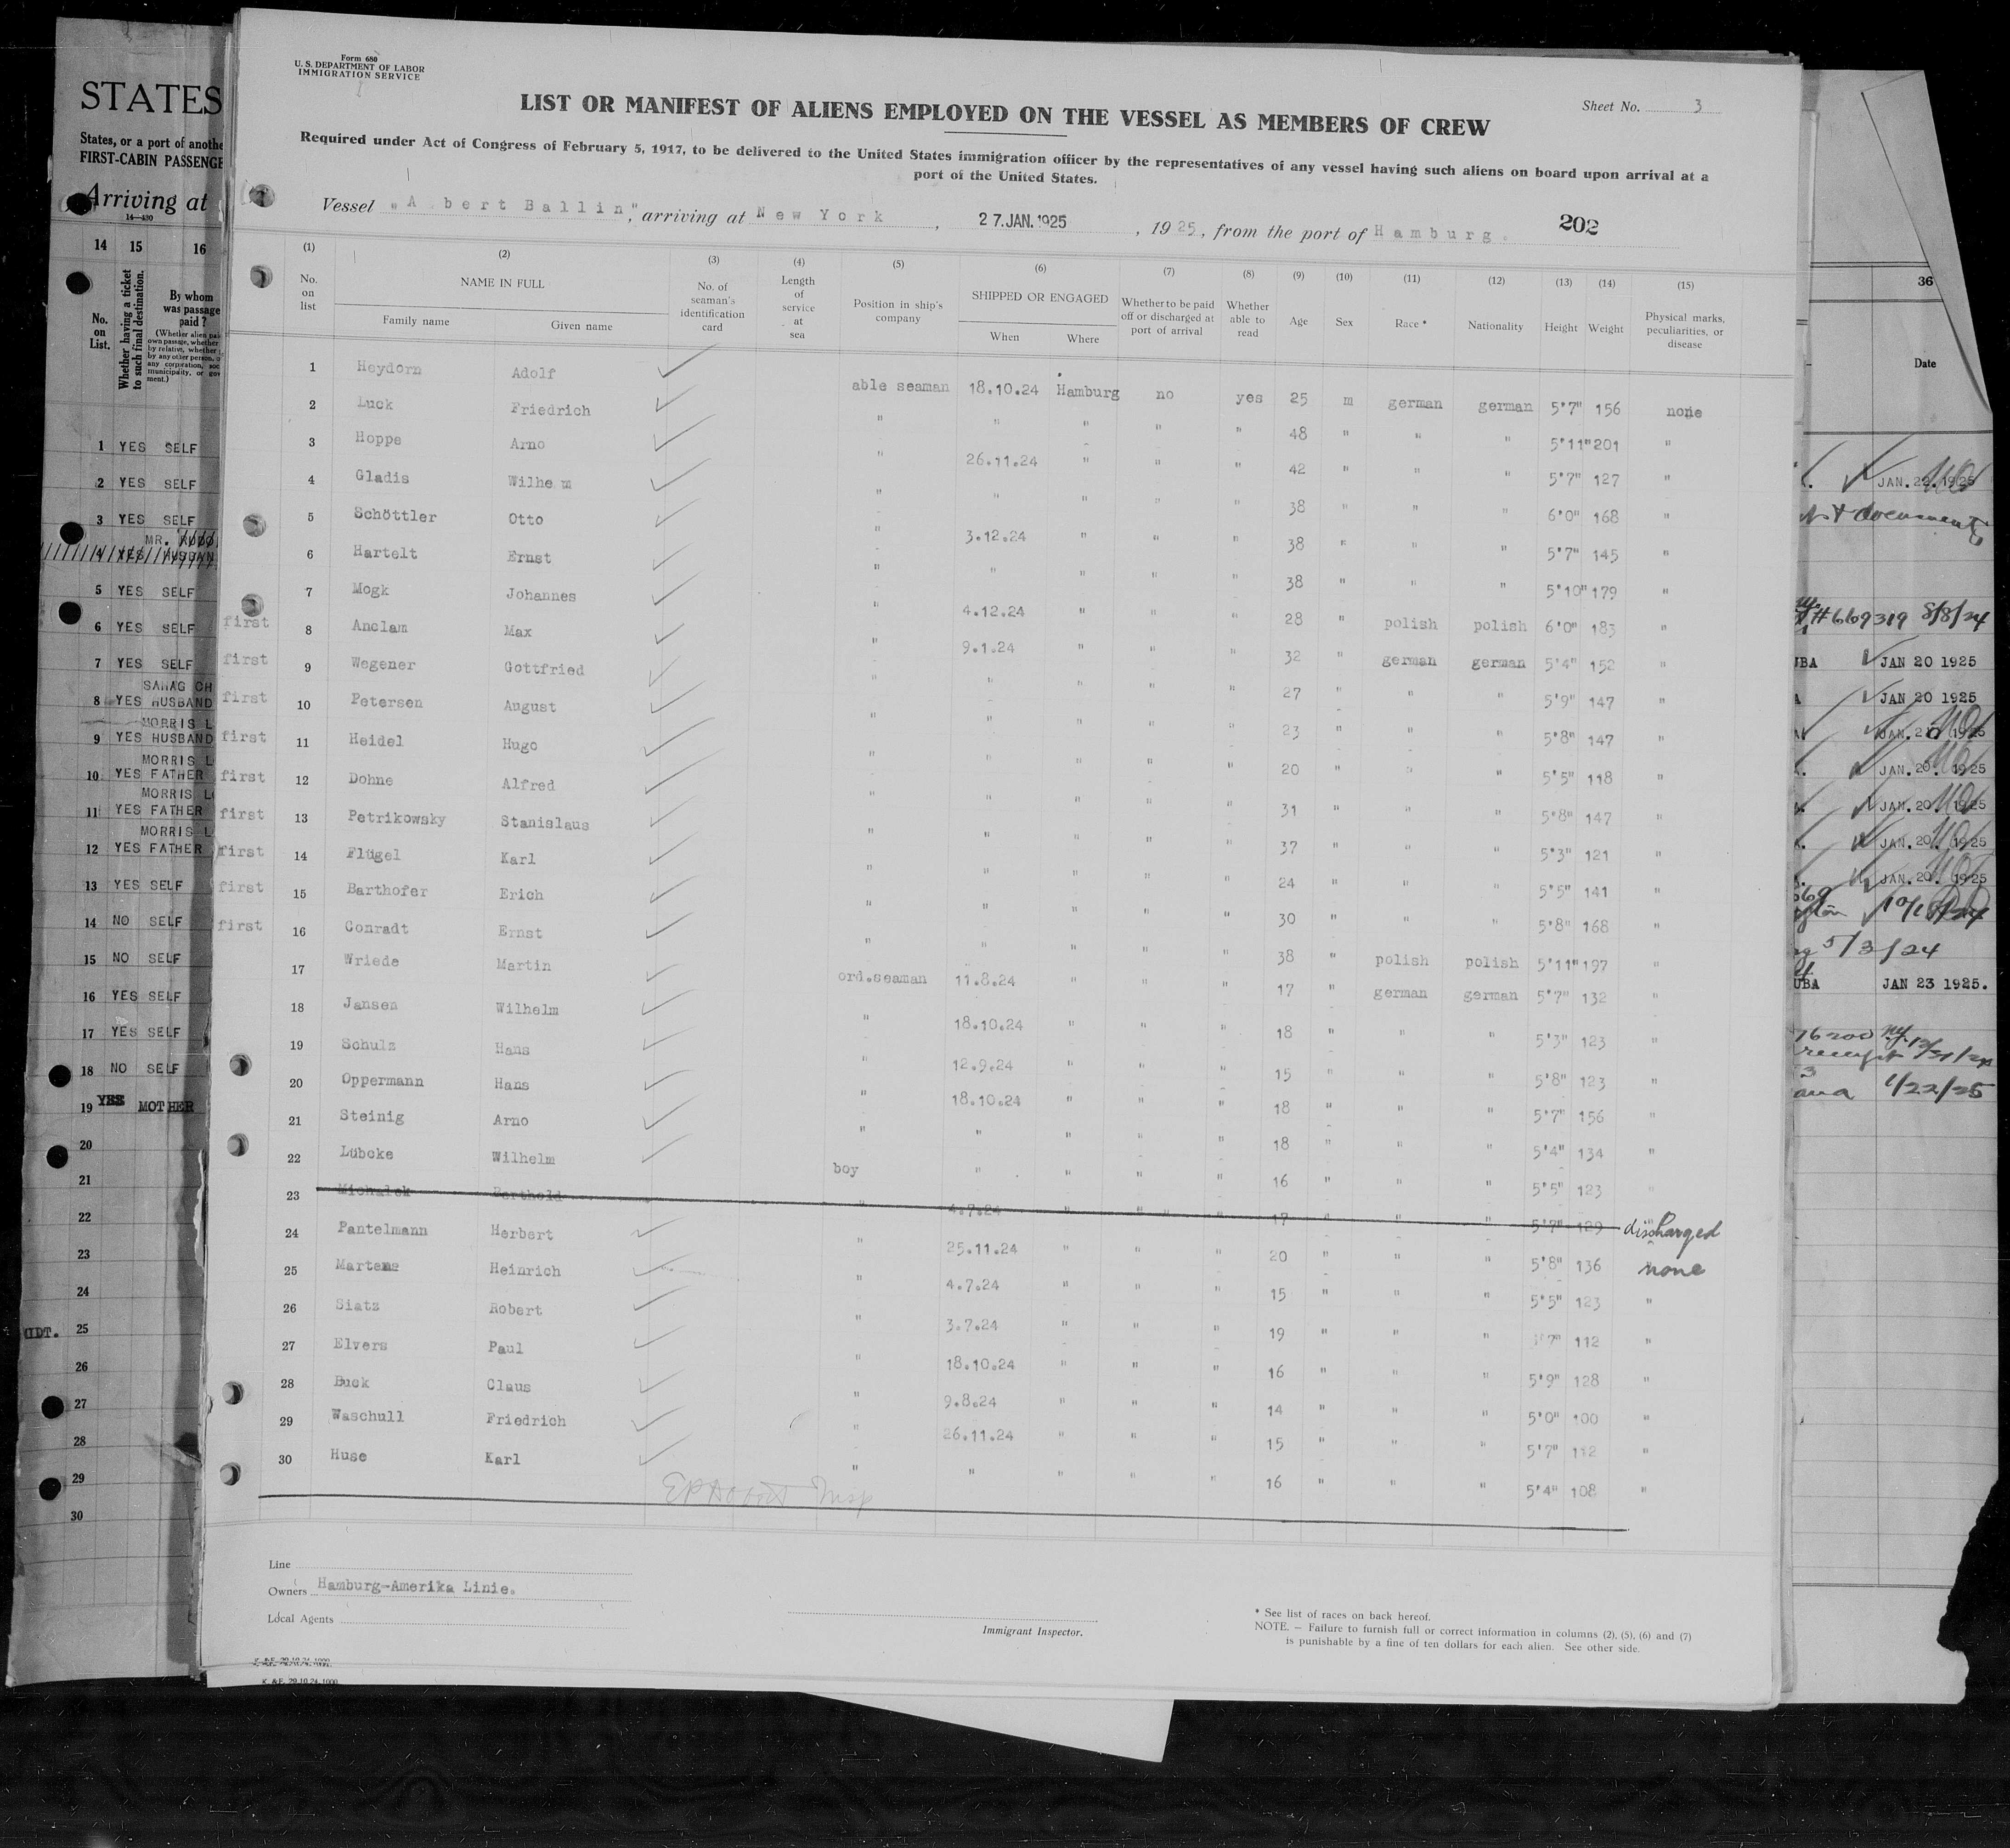 Form 680
U. S. DEPARTMENT OF LABOR
IMMIGRATION SERVICE
Sheet No. 3
LIST OR MANIFEST OF ALIENS EMPLOYED ON THE VESSEL AS MEMBERS OF CREW
Required under Act of Congress of February 5, 1917, to be delivered to the United States immigration officer by the representatives of any vessel having such aliens on board upon arrival at a
port of the United States.
Vessel "A bert Ballin", arriving at New York, 27. JAN. 1925, 1925, from the port of Hamburg. 202
(1) (2) (3) (4) (5) (6) (7) (8) (9) (10) (11) (12) (13) (14) (15)
No. on list NAME IN FULL Family name Given name No. of seaman's identification card Length of service at sea Position in ship's company SHIPPED OR ENGAGED When Where Whether to be paid off or discharged at port of arrival Whether able to read Age Sex Race * Nationality Height Weight Physical marks, peculiarities, or disease
1 Heydorn Adolf able seaman 18.10.24 Hamburg no yes 25 m german german 5'7" 156 none
2 Luck Friedrich " " " " " 48 " " " 5'11" 201 "
3 Hoppe Arno " 26.11.24 " " " 42 " " " 5'7" 127 "
4 Gladis Wilhe m " " " " " 38 " " " 6'0" 168 "
5 Schöttler Otto " 3.12.24 " " " 38 " " " 5'7" 145 "
6 Hartelt Ernst " " " " " 38 " " " 5'10" 179 "
7 Mogk Johannes " 4.12.24 " " " 28 " polish polish 6'0" 183 "
first 8 Anclam Max " 9.1.24 " " " 32 " german german 5'4" 152 "
first 9 Wegener Gottfried " " " " " 27 " " " 5'9" 147 "
first 10 Petersen August " " " " " 23 " " " 5'8" 147 "
first 11 Heidel Hugo " " " " " 20 " " " 5'5" 118 "
first 12 Dohne Alfred " " " " " 31 " " " 5'8" 147 "
first 13 Petrikowsky Stanislaus " " " " " 37 " " " 5'3" 121 "
first 14 Flügel Karl " " " " " 24 " " " 5'5" 141 "
first 15 Barthofer Erich " " " " " 30 " " " 5'8" 168 "
first 16 Conradt Ernst " " " " " 38 " polish polish 5'11" 197 "
17 Wriede Martin ord.seaman 11.8.24 " " " 17 " german german 5'7" 132 "
18 Jansen Wilhelm " 18.10.24 " " " 18 " " " 5'3" 123 "
19 Schulz Hans " 12.9.24 " " " 15 " " " 5'8" 123 "
20 Oppermann Hans " 18.10.24 " " " 18 " " " 5'7" 156 "
21 Steinig Arno " " " " " 18 " " " 5'4" 134 "
22 Lübcke Wilhelm boy " " " " 16 " " " 5'5" 123 "
23 Michalek Berthold " 4.7.24 " " " 17 " " " 5'7" 129 discharged
24 Pantelmann Herbert " 25.11.24 " " " 20 " " " 5'8" 136 none
25 Martens Heinrich " 4.7.24 " " " 15 " " " 5'5" 123 "
26 Siatz Robert " 3.7.24 " " " 19 " " " 7" 112 "
27 Elvers Paul " 18.10.24 " " " 16 " " " 5'9" 128 "
28 Buck Claus " 9.8.24 " " " 14 " " " 5'0" 100 "
29 Waschull Friedrich " 26.11.24 " " " 15 " " " 5'7" 112 "
30 Huse Karl " " " " " 16 " " " 5'4" 108 "
Line
Owners Hamburg-Amerika Linie.
Local Agents
Immigrant Inspector.
* See list of races on back hereof.
NOTE. — Failure to furnish full or correct information in columns (2), (5), (6) and (7)
is punishable by a fine of ten dollars for each alien. See other side.
K. &E. 29.10.24. 1000.
K. &E. 29.10.24. 1000
STATES
States, or a port of anothe
FIRST-CABIN PASSENGE
Arriving at
14—430
14 15 16
No. on List. Whether having a ticket to such final destination. By whom was passage paid?
1 YES SELF
2 YES SELF
3 YES SELF
MR. RUDO
4 YES HUSBAN
5 YES SELF
6 YES SELF
7 YES SELF
8 YES HUSBAND
MORRIS L
9 YES HUSBAND
MORRIS L
10 YES FATHER
MORRIS L
11 YES FATHER
MORRIS L
12 YES FATHER
13 YES SELF
14 NO SELF
15 NO SELF
16 YES SELF
17 YES SELF
18 NO SELF
19 YES MOTHER
20
21
22
23
24
IDT. 25
26
27
28
29
30
36
Date
JAN. 22. 1925
document
#669319 8/8/24
UBA JAN 20 1925
JAN 20 1925
JAN. 20. 1925
JAN. 20. 1925
JAN. 20. 1925
JAN. 20. 1925
5/3/24
UBA JAN 23 1925.
1/22/25